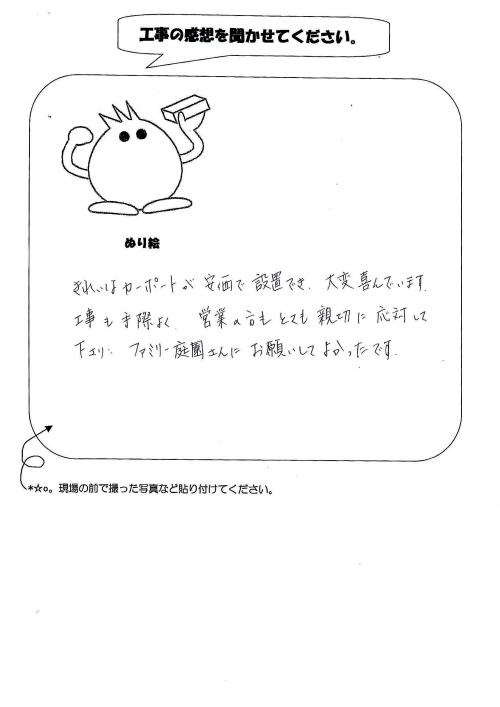 工事の感想を聞かせてください。
ぬり絵
きれいなカーポートが 安価で 設置でき、大変喜んでいます。
工事も手際よく、営業の方も とても 親切に 応対して
下さり、ファミリー庭園さんに お願いして よかったです。
*☆○。現場の前で撮った写真など貼り付けてください。